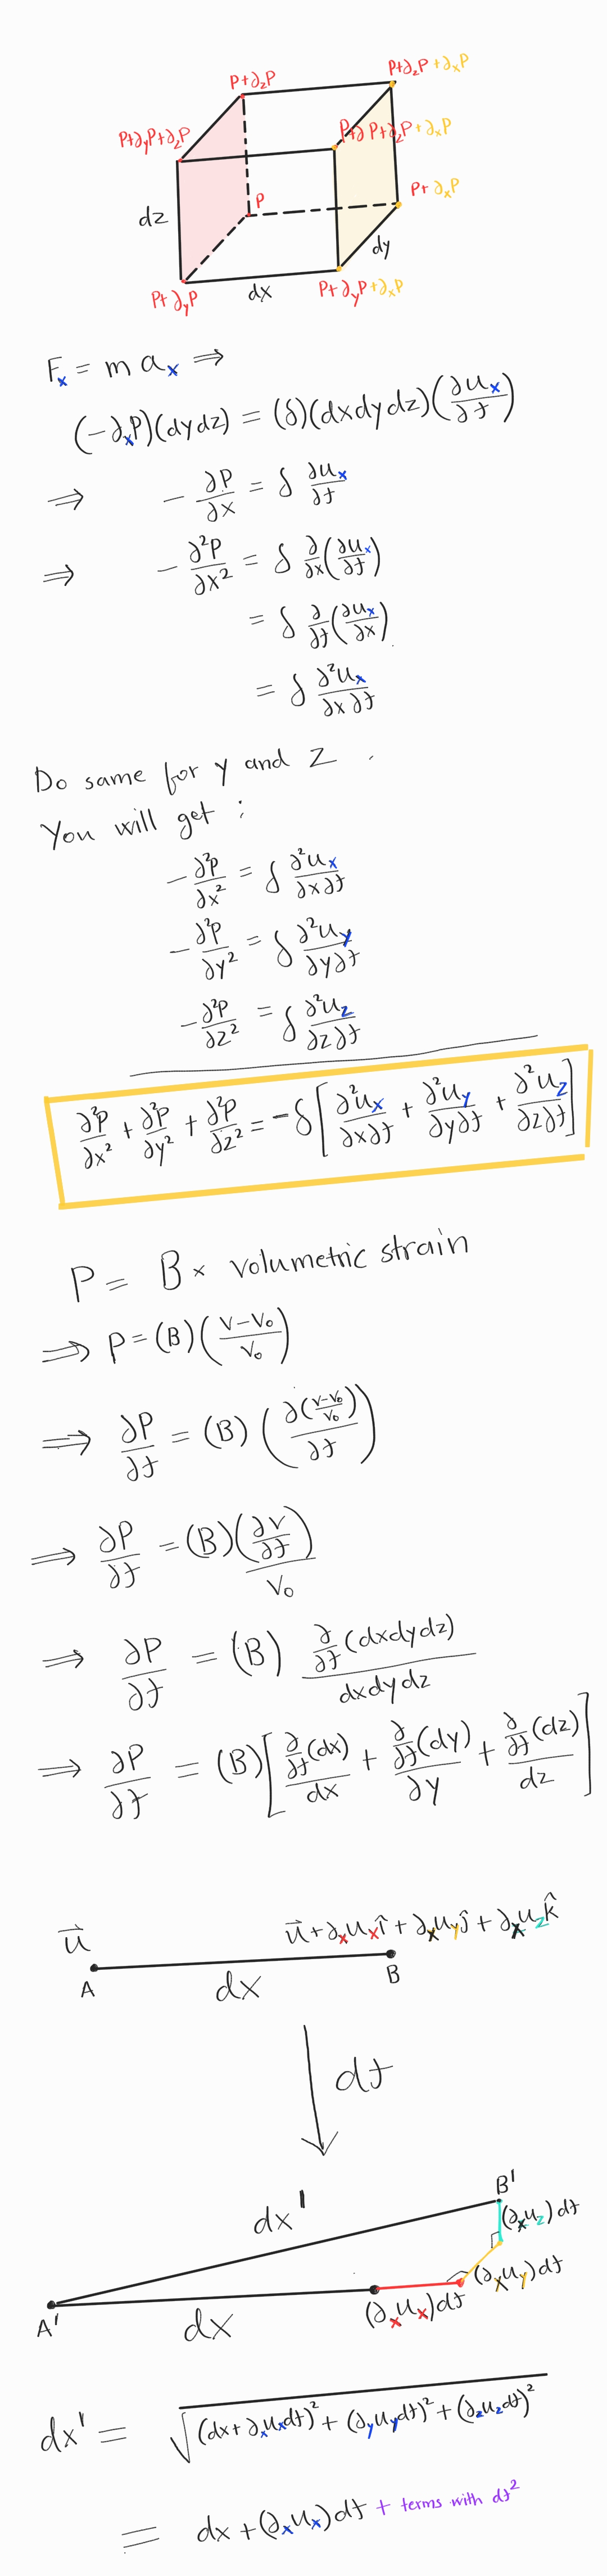 P+∂zP
P+∂zP+∂xP
P+∂yP+∂zP
P+∂P+∂zP+∂xP
P
P+∂xP
dz
dy
P+∂yP
dx
P+∂yP+∂xP
Fx = m ax ⇒
(-∂xP)(dydz) = (δ)(dxdydz)(∂ux/∂t)
⇒ -∂P/∂x = δ ∂ux/∂t
⇒ -∂²P/∂x² = δ ∂/∂x(∂ux/∂t)
= δ ∂/∂t(∂ux/∂x)
= δ ∂²ux/∂x∂t
Do same for y and z.
You will get:
-∂²P/∂x² = δ ∂²ux/∂x∂t
-∂²P/∂y² = δ ∂²uy/∂y∂t
-∂²P/∂z² = δ ∂²uz/∂z∂t
∂²P/∂x² + ∂²P/∂y² + ∂²P/∂z² = -δ[∂²ux/∂x∂t + ∂²uy/∂y∂t + ∂²uz/∂z∂t]
P = B × volumetric strain
⇒ P = (B)((v-v₀)/v₀)
⇒ ∂P/∂t = (B)(∂((v-v₀)/v₀)/∂t)
⇒ ∂P/∂t = (B)(∂v/∂t)/v₀
⇒ ∂P/∂t = (B) ∂/∂t(dxdydz)/dxdydz
⇒ ∂P/∂t = (B)[∂/∂t(dx)/dx + ∂/∂t(dy)/∂y + ∂/∂t(dz)/dz]
u⃗
u⃗+∂xuxî+∂xuyĵ+∂xuzk̂
A
dx
B
dt
B'
dx'
(∂xuz)dt
(∂xuy)dt
A'
dx
(∂xux)dt
dx' = √((dx+∂xuxdt)²+(∂yuydt)²+(∂zuzdt)²)
= dx+(∂xux)dt + terms with dt²